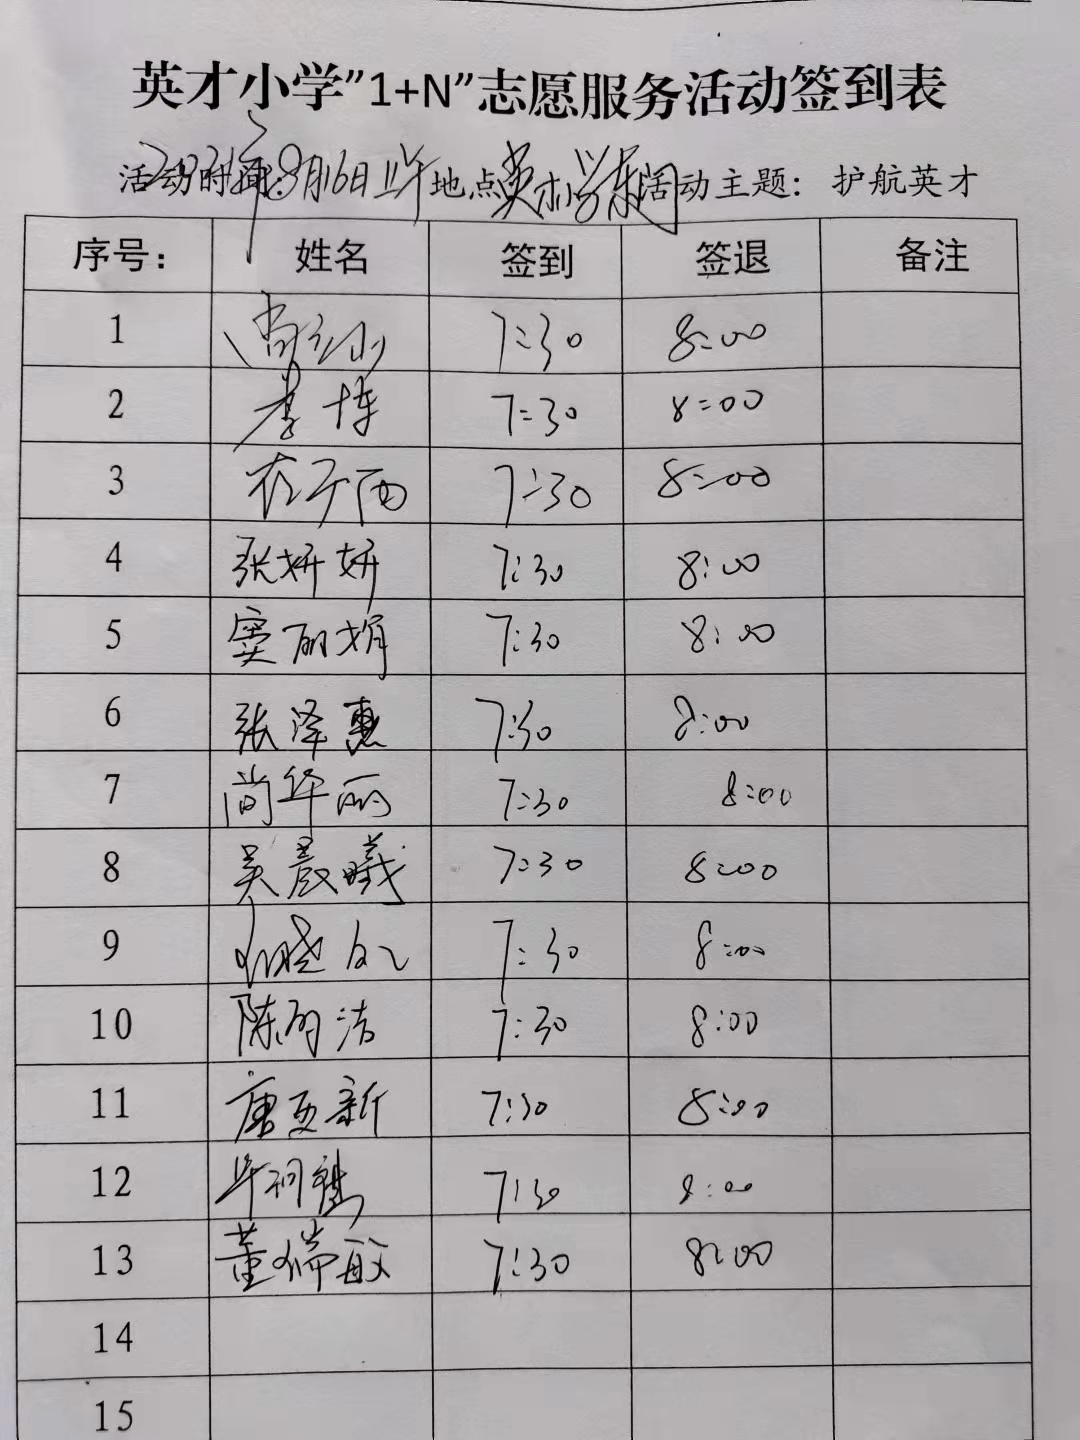 英才小学"1+N"志愿服务活动签到表
活动时间：8月16日上午 地点 英才小学东门 活动主题： 护航英才
序号： 姓名 签到 签退 备注
1 7:30 8:00
2 李博 7:30 8:00
3 7:30 8:00
4 张妍妍 7:30 8:00
5 窦丽娟 7:30 8:00
6 张泽惠 7:30 8:00
7 尚华丽 7:30 8:00
8 吴晨曦 7:30 8:00
9 7:30 8:00
10 陈明洁 7:30 8:00
11 唐更新 7:30 8:00
12 7:30 8:00
13 董瑞敏 7:30 8:00
14
15